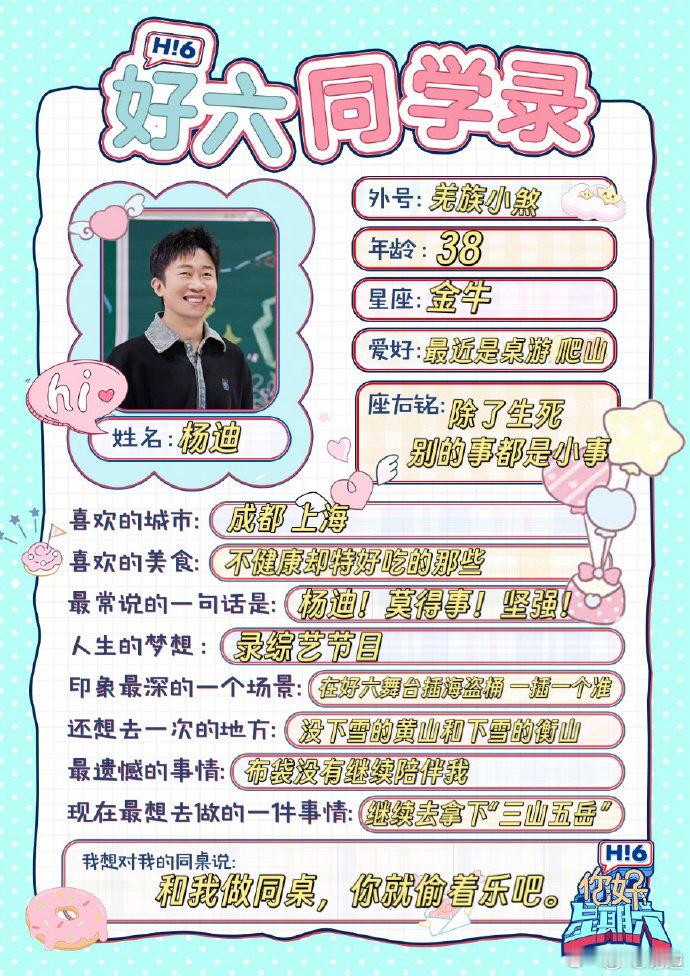 H!6
好六同学录
外号: 羌族小煞
年龄: 38
星座: 金牛
爱好: 最近是桌游 爬山
座右铭: 除了生死
别的事都是小事
hi
姓名: 杨迪
喜欢的城市: 成都 上海
喜欢的美食: 不健康却特好吃的那些
最常说的一句话是: 杨迪！莫得事！坚强！
人生的梦想: 录综艺节目
印象最深的一个场景: 在好六舞台插海盗桶 一插一个准
还想去一次的地方: 没下雪的黄山和下雪的衡山
最遗憾的事情: 布袋没有继续陪伴我
现在最想去做的一件事情: 继续去拿下“三山五岳”
我想对我的同桌说:
和我做同桌，你就偷着乐吧。
H!6
你好
星期六